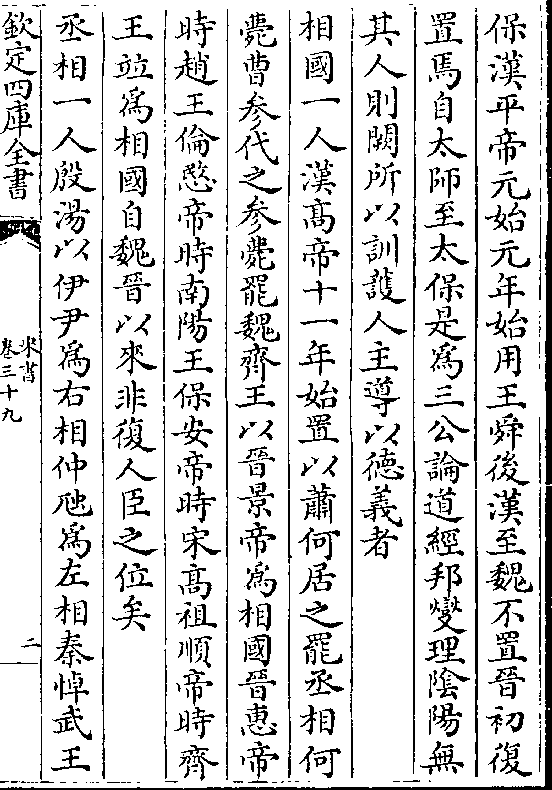 保漢平帝元始元年始用王舜後漢至魏不置晉初復
置焉自太師至太保是爲三公論道經邦燮理隂陽無
其人則闕所以訓護人主導以徳義者
相國一人漢髙帝十一年始置以蕭何居之罷丞相何
薨曹參代之參薨罷魏齊王以晉景帝爲相國晉惠帝
時趙王倫愍帝時南陽王保安帝時宋髙祖順帝時齊
王竝爲相國自魏晉以來非復人臣之位矣
丞相一人殷湯以伊尹爲右相仲虺爲左相秦悼武王
欽定四庫全書
宋書
卷三十九
二